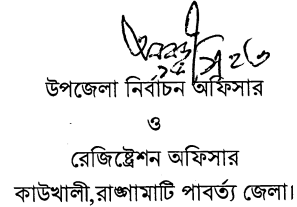 উপজেলা নির্বাচন অফিসার
ও
রেজিষ্ট্রেশন অফিসার
কাউখালী,রাঙ্গামাটি পাবর্ত্য জেলা।